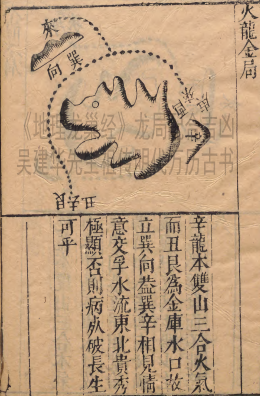 火龍金局
來
向巽
丑艮
辛龍本雙山三合火氣
而丑艮為金庫水口故
立巽向葢巽辛相見情
意交孚水流東北貴秀
極顯否則病破長生
可平
《地理龙经》龙局吉凶
吴建华先生祖传明代万历古书